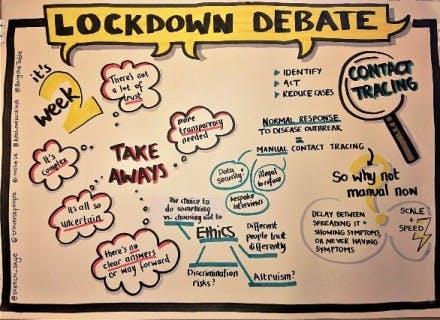 LOCKDOWN DEBATE
it's
WEEK
2
There's not
a lot of
trust
more
transparency
needed
It's
complex
TAKE
AWAYS
It's all so
uncertain
there's no
clear answers
or way forward
IDENTIFY
ACT
REDUCE CASES
CONTACT
TRACING
NORMAL RESPONSE
TO DISEASE OUTBREAK
= MANUAL CONTACT TRACING
Data
security
illegal
to refuse
bespoke
interviews
So why not
manual now
?
DELAY BETWEEN
SPREADING IT +
SHOWING SYMPTOMS
OR NEVER HAVING
SYMPTOMS
SCALE
+
SPEED
The choice to
do something
vs. choosing not to
ETHICS
Different
people treat
differently
Discrimination
risks?
Altruism?